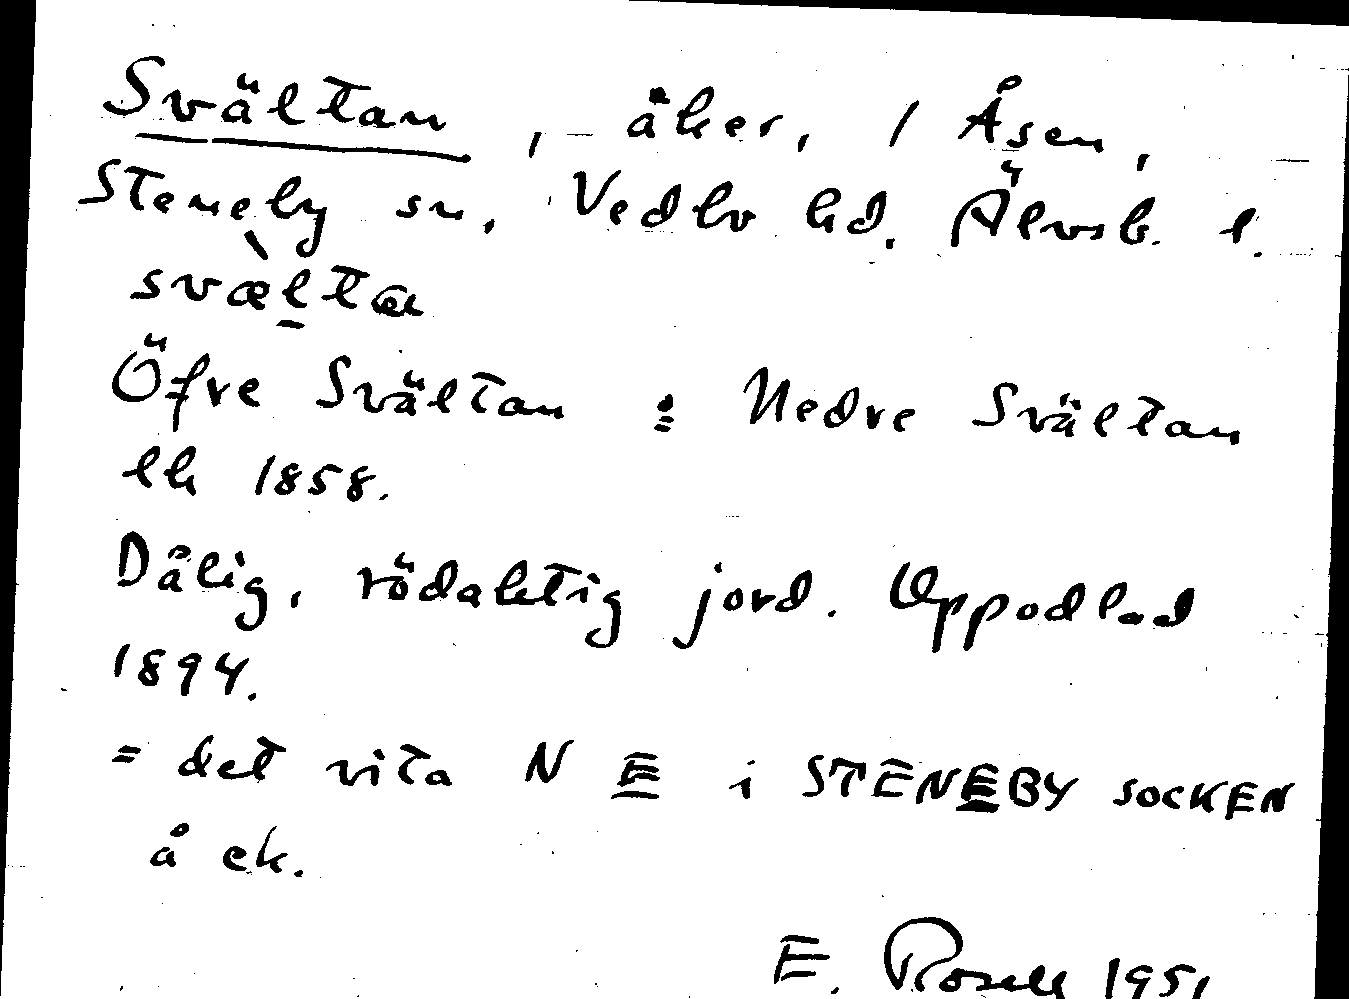 Svältan, åker, / Åsen,
Steneby sn, Vedbo hd. Älvsb. l.
svælta
Öfre Svältan : Nedre Svältan
lk 1858.
Dålig, rödaktig jord. Uppodlad
1894.
= det vita N E i STENEBY SOCKEN
å ek.
E. Rosell 1951